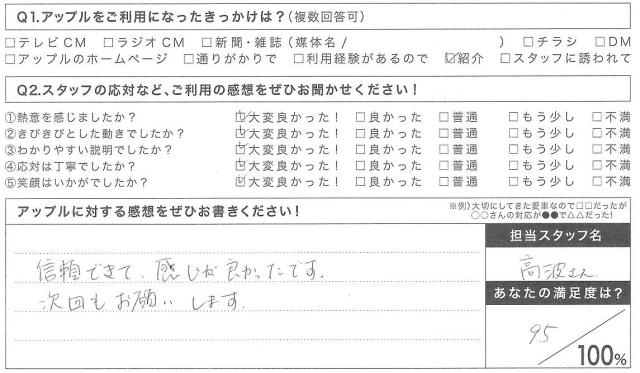 Q1.アップルをご利用になったきっかけは?(複数回答可)
□テレビCM □ラジオCM □新聞・雑誌(媒体名/ ) □チラシ □DM
□アップルのホームページ □通りがかりで □利用経験があるので ☑紹介 □スタッフに誘われて
Q2.スタッフの応対など、ご利用の感想をぜひお聞かせください!
①熱意を感じましたか? ☑大変良かった! □良かった □普通 □もう少し □不満
②きびきびとした動きでしたか? ☑大変良かった! □良かった □普通 □もう少し □不満
③わかりやすい説明でしたか? ☑大変良かった! □良かった □普通 □もう少し □不満
④応対は丁寧でしたか? ☑大変良かった! □良かった □普通 □もう少し □不満
⑤笑顔はいかがでしたか? ☑大変良かった! □良かった □普通 □もう少し □不満
アップルに対する感想をぜひお書きください!
※例)大切にしてきた愛車なので□□だったが
○○さんの対応が●●で△△だった!
信頼できて、感じが良かったです。
次回もお願いします。
担当スタッフ名
高波さん
あなたの満足度は?
95/100%